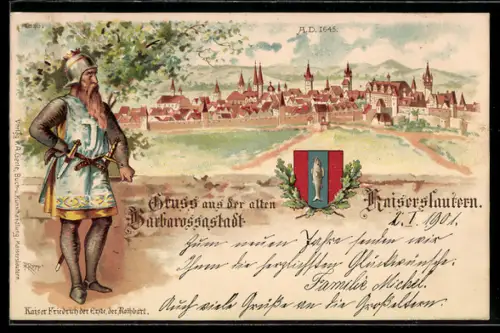 A.D. 1645.
Gruss aus der alten
Barbarossastadt
Kaiserslautern.
2. I. 1901.
Zum neuen Jahre senden wir
Ihnen die herzlichsten Glückwünsche.
Familie Michel.
Auch viele Grüße an die Großeltern.
Kaiser Friedrich der Erste, der Rothbart.